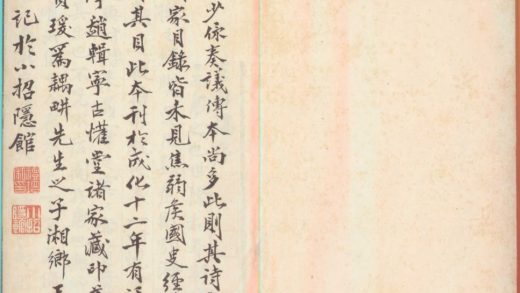 少保奏議傳本尚多此則其詩
家目錄皆未見焦弱矦國史經
其目此本刊於成化十二年有
趙輯寧古懽堂諸家藏印
瑗爲耦畊先生之子湘鄉
記於小招隱館